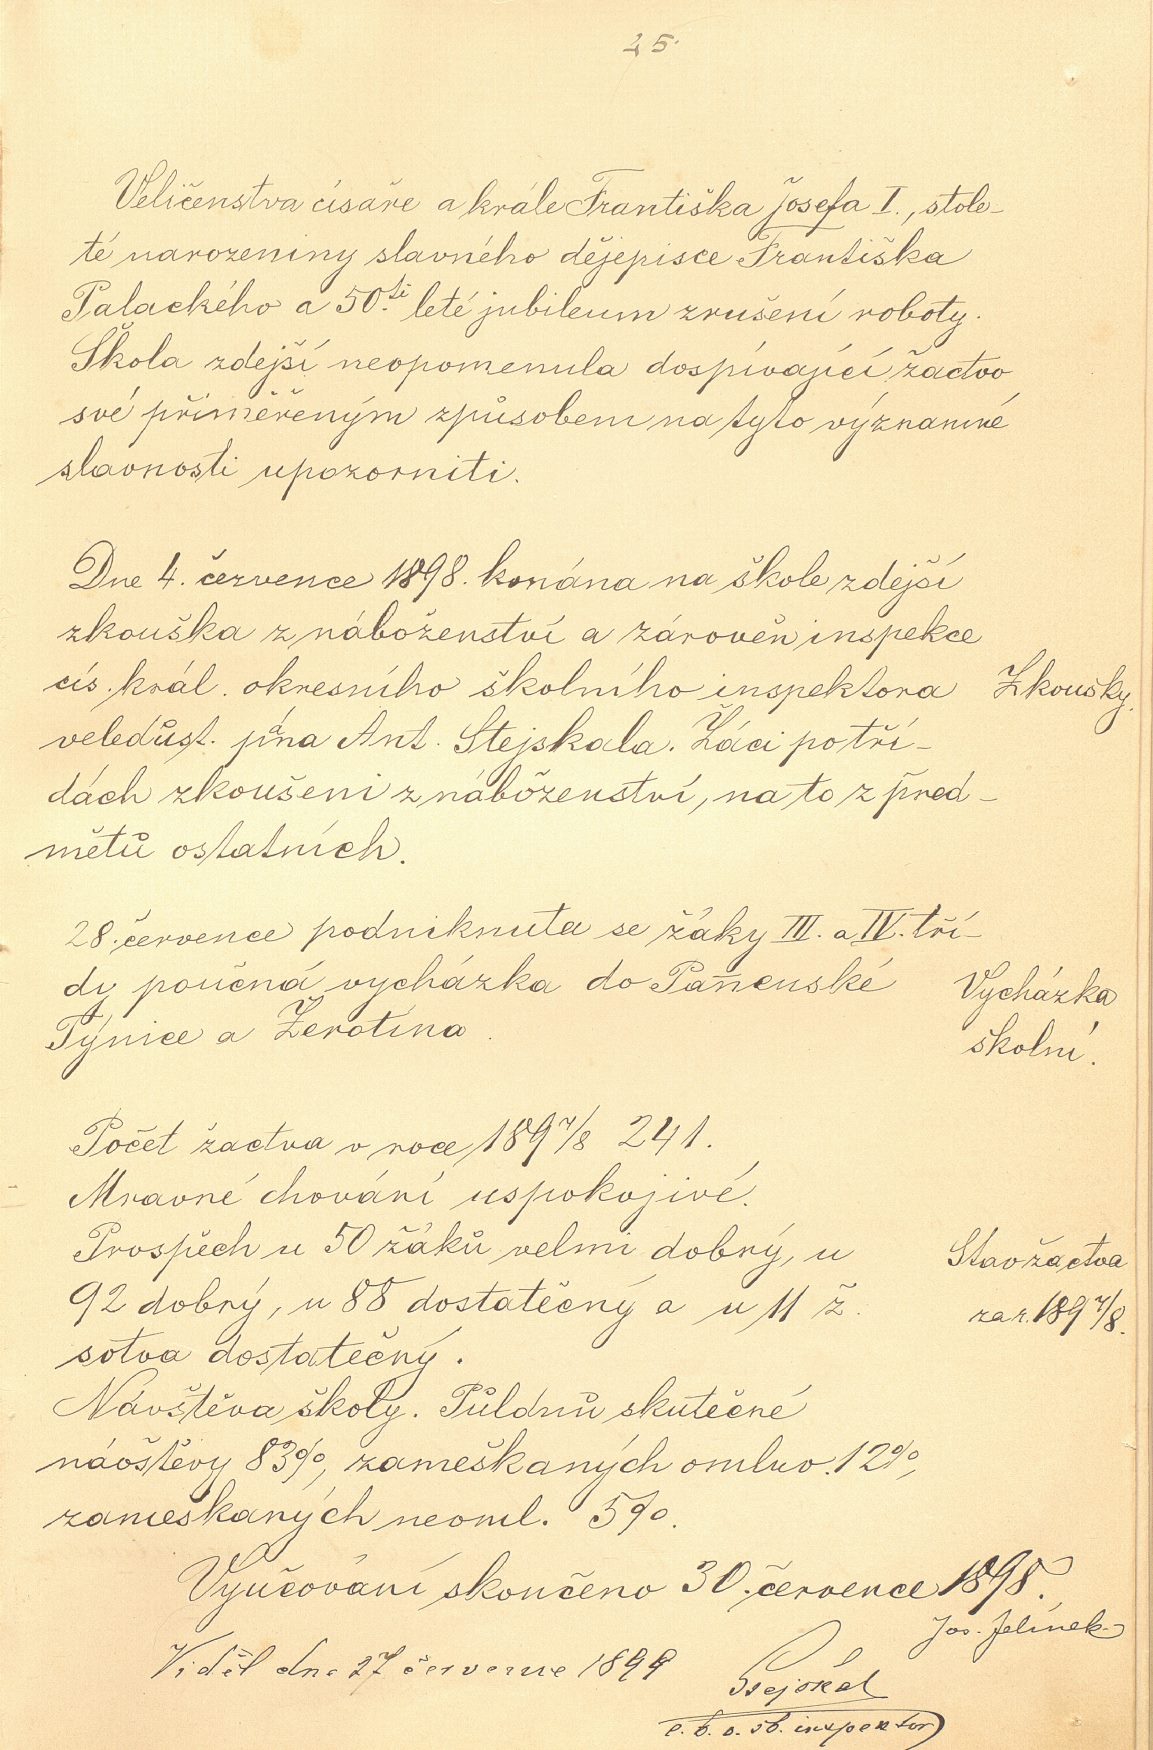 25.
Veličenstva císaře a krále Františka Josefa I., stole-
té narozeniny slavného dějepisce Františka
Palackého a 50.ti leté jubileum zrušení roboty.
Škola zdejší neopomenula dospívající žactvo
své přiměřeným způsobem na tyto významné
slavnosti upozorniti.
Dne 4. července 1898. konána na škole zdejší
zkouška z náboženství a zároveň inspekce
cís. král. okresního školního inspektora
Zkoušky.
veledůst. pána Ant. Stejskala. Žáci po tří-
dách zkoušeni z náboženství, na to z před-
mětů ostatních.
28. července podniknuta se žáky III. a IV. tří-
dy poučná vycházka do Panenské
Týnice a Žerotína.
Vycházka
školní.
Počet žactva v roce 1897/8 241.
Mravné chování uspokojivé.
Prospěch u 50 žáků velmi dobrý, u
92 dobrý, u 88 dostatečný a u 11 ž.
sotva dostatečný.
Stav žactva
za r. 1897/8.
Návštěva školy. Půldnů skutečné
návštěvy 83%, zameškaných omluv. 12%,
zameškaných neoml. 5%.
Vyučování skončeno 30. července 1898.
Jos. Jelínek
Viděl dne 27 července 1899
Stejskal
c. k. o. šk. inspektor